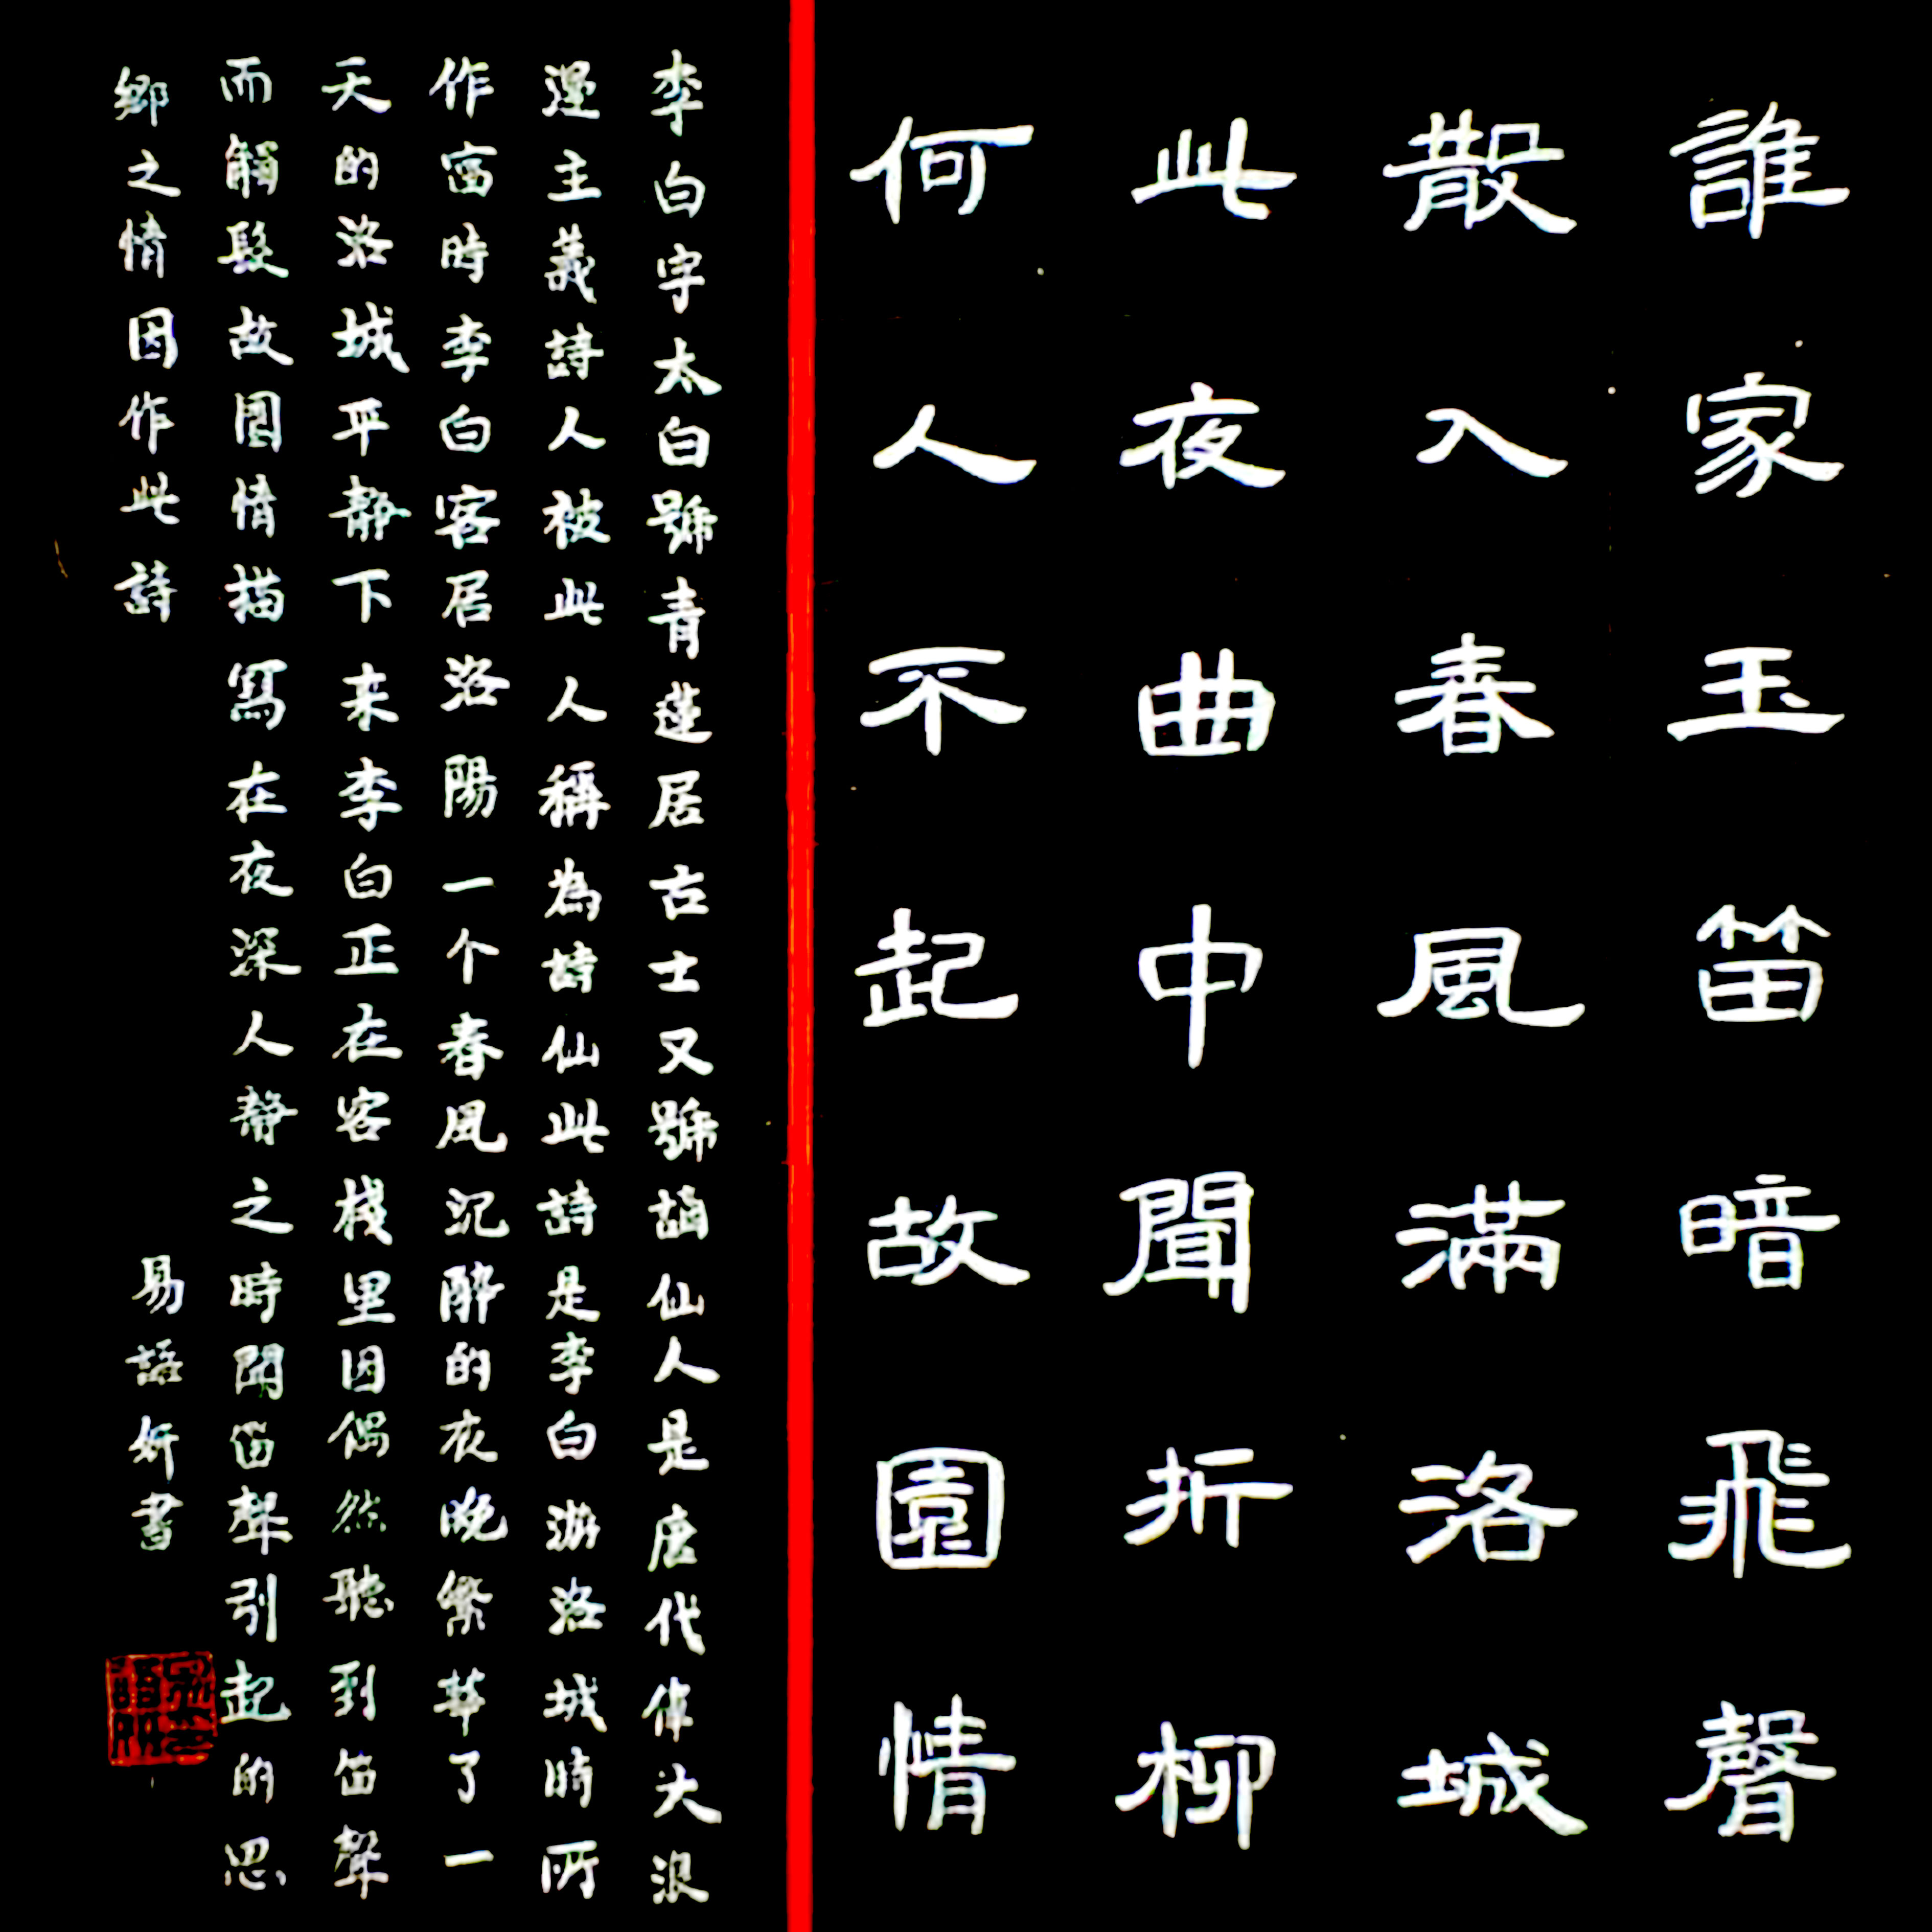 誰家玉笛暗飛聲
散入春風滿洛城
此夜曲中聞折柳
何人不起故園情
李白字太白號青蓮居古士又號謫仙人是唐代偉大浪
漫主義詩人被此人稱為詩仙此詩是李白游洛城時所
作當時李白客居洛陽一个春風沉醉的衣晚繁華了一
天的洛城平靜下来李白正在客棧里因偶然聽到笛聲
而觸發故園情描寫在夜深人靜之時聞笛聲引起的思
鄉之情因作此詩
易語妍書